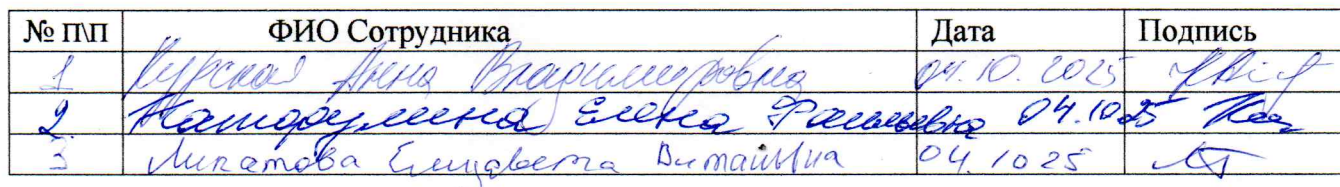 № П\П ФИО Сотрудника Дата Подпись
1 Курская Анна Владимировна 04.10.2025
2. Елена 04.10.25
3 Липатова Елизавета Витальевна 04.10 25